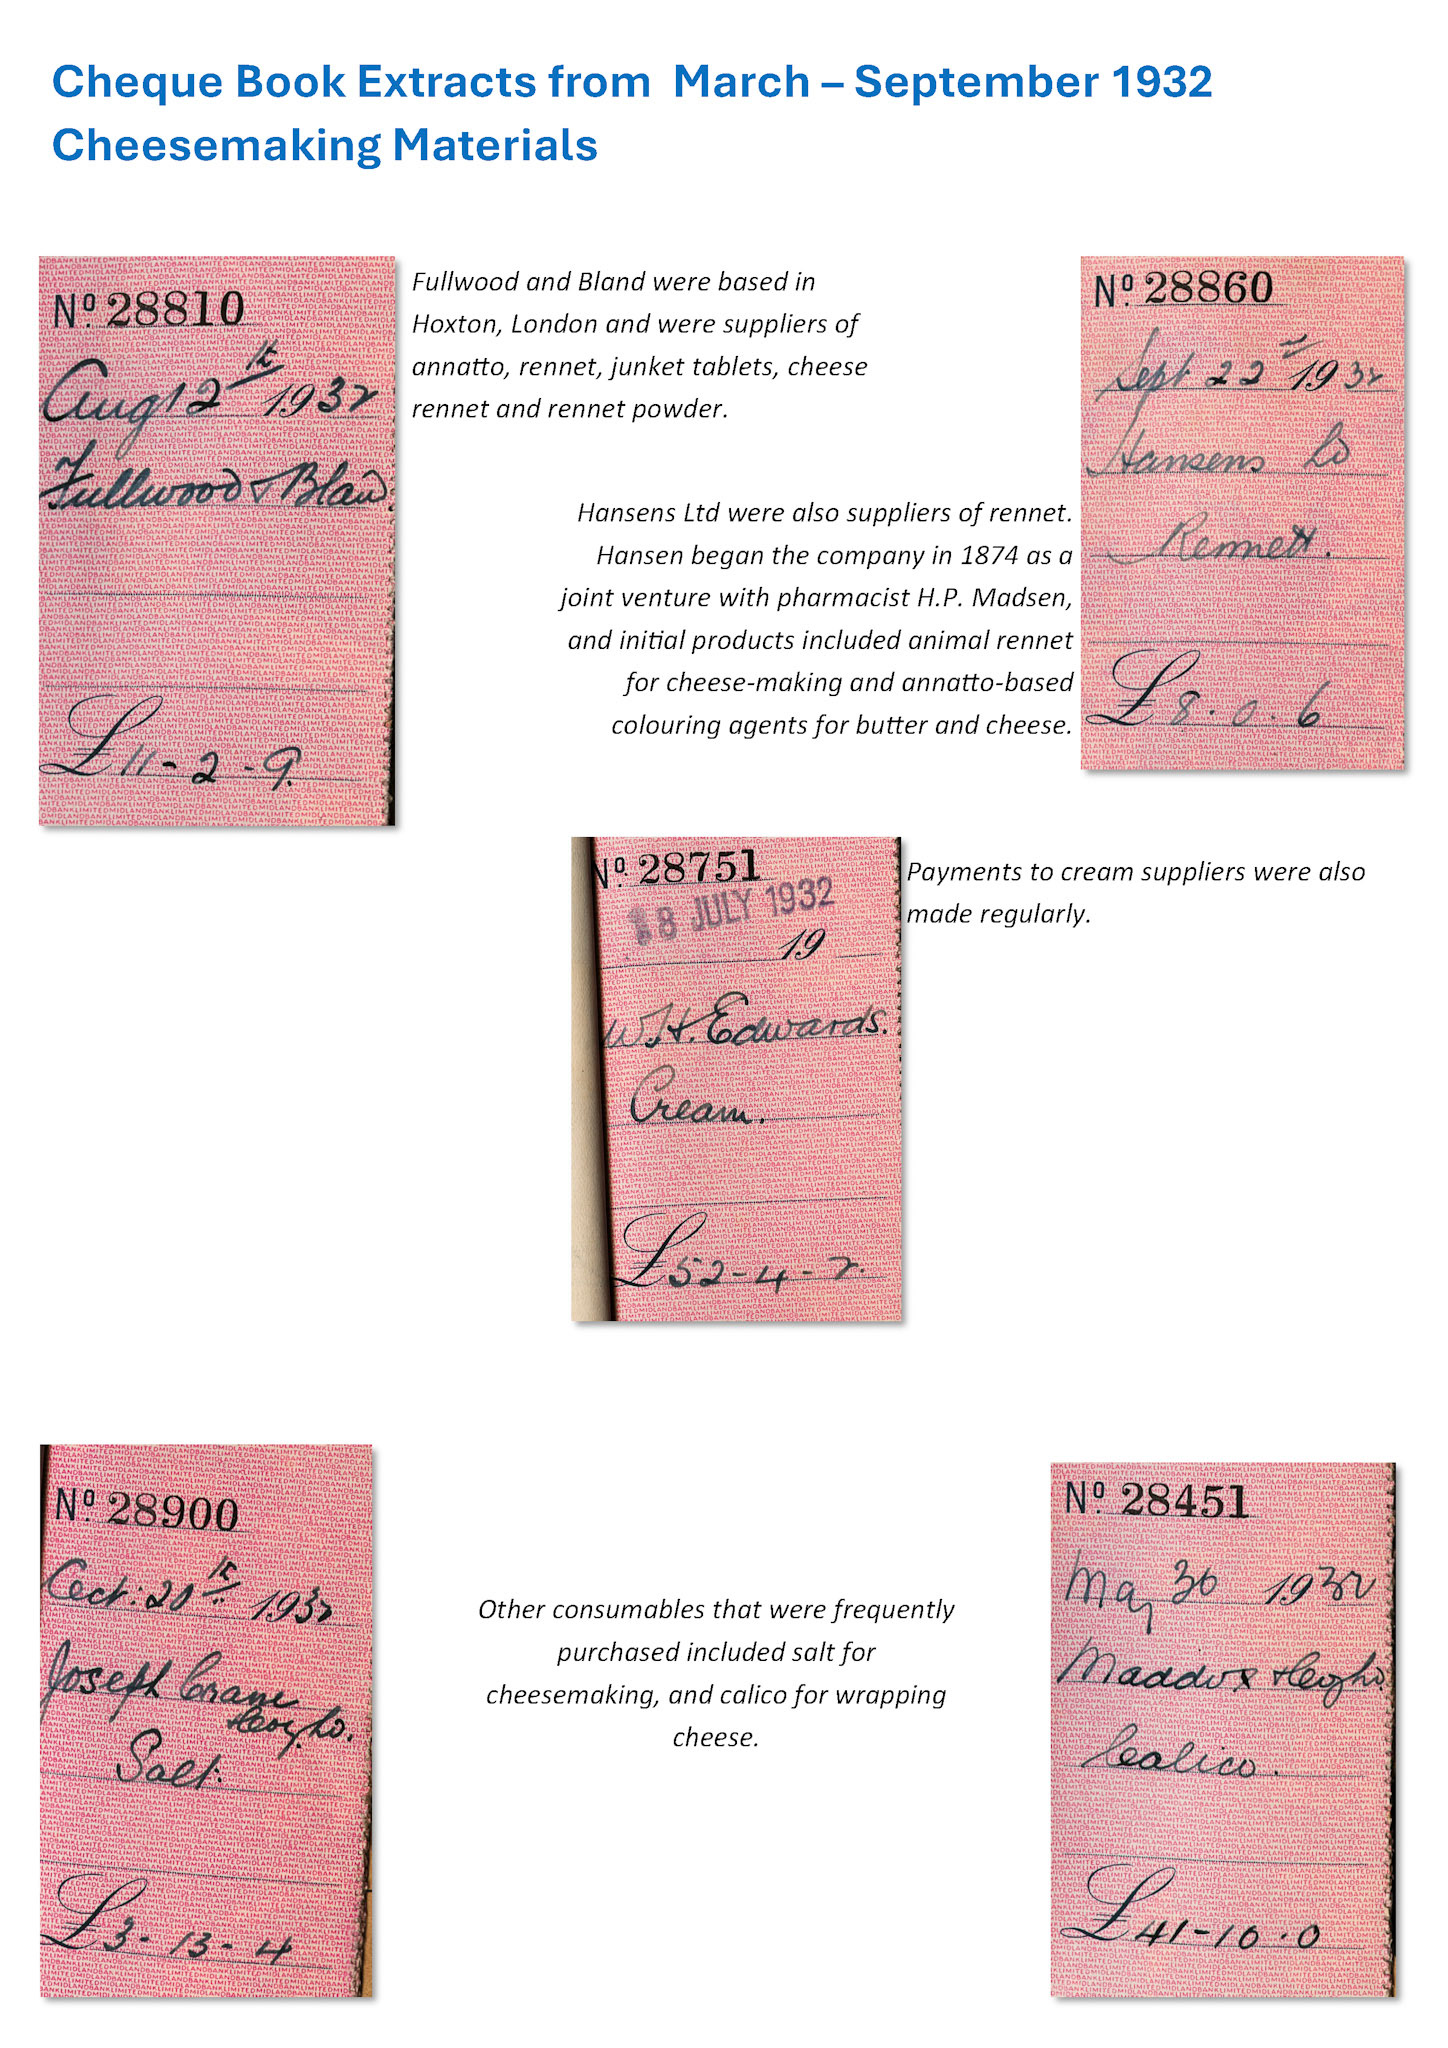 Cheque Book Extracts from March – September 1932
Cheesemaking Materials
Nº 28810
Aug 12th 1932
Fullwood & Bland
£11-2-9
Fullwood and Bland were based in
Hoxton, London and were suppliers of
annatto, rennet, junket tablets, cheese
rennet and rennet powder.
Nº 28860
Sept 22nd 1932
Hansens Ld
Rennett.
£8.0.6
Hansens Ltd were also suppliers of rennet.
Hansen began the company in 1874 as a
joint venture with pharmacist H.P. Madsen,
and initial products included animal rennet
for cheese-making and annatto-based
colouring agents for butter and cheese.
Nº 28751
18 JULY 1932
19
W.H. Edwards.
Cream.
£52-4-7.
Payments to cream suppliers were also
made regularly.
Nº 28900
Oct: 20th 1932
Joseph Crane
Ld.
Salt.
£3-13-4
Other consumables that were frequently
purchased included salt for
cheesemaking, and calico for wrapping
cheese.
Nº 28451
May 30 1932
Maddox
Calico.
£41-10.0